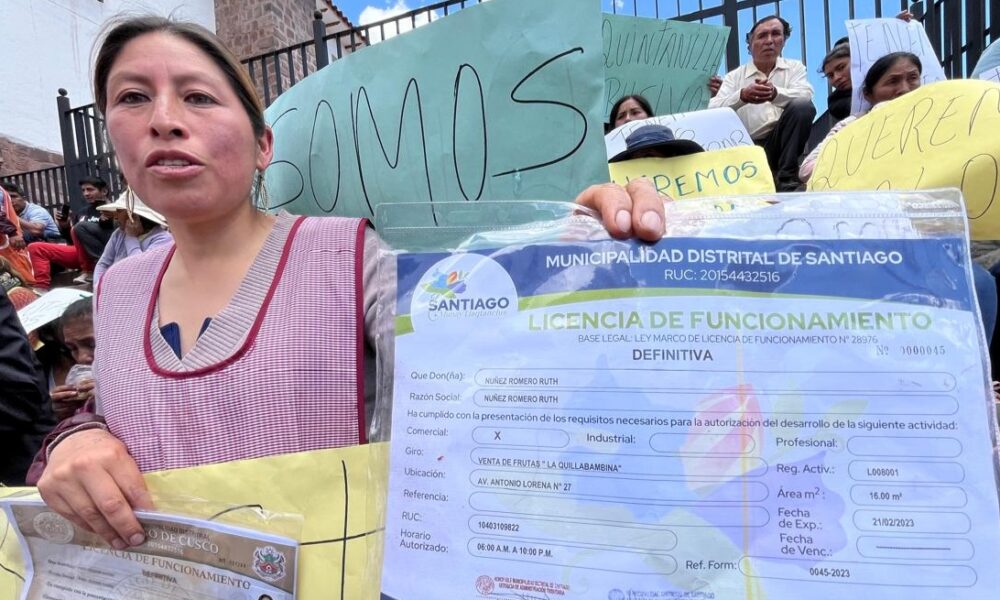 SOMOS
QUINTANILLA
TENE
QUEREMOS
QUEREM
MUNICIPALIDAD DISTRITAL DE SANTIAGO
RUC: 20154432516
SANTIAGO
LICENCIA DE FUNCIONAMIENTO
BASE LEGAL: LEY MARCO DE LICENCIA DE FUNCIONAMIENTO N° 28976
Nº 0000045
DEFINITIVA
Que Don(ña): NUÑEZ ROMERO RUTH
Razón Social: NUÑEZ ROMERO RUTH
Ha cumplido con la presentación de los requisitos necesarios para la autorización del desarrollo de la siguiente actividad:
Comercial: X Industrial: Profesional:
Giro: VENTA DE FRUTAS " LA QUILLABAMBINA" Reg. Activ.: L008001
Ubicación: AV. ANTONIO LORENA N° 27 Área m²: 16.00 m²
Referencia: Fecha de Exp.: 21/02/2023
RUC: 10403109822 Fecha de Venc.:
Horario Autorizado: 06:00 A.M. A 10:00 P.M. Ref. Form: 0045-2023
DE CUSCO
LICENCIA DE FUNCIONAMIENTO
DEFINITIVA